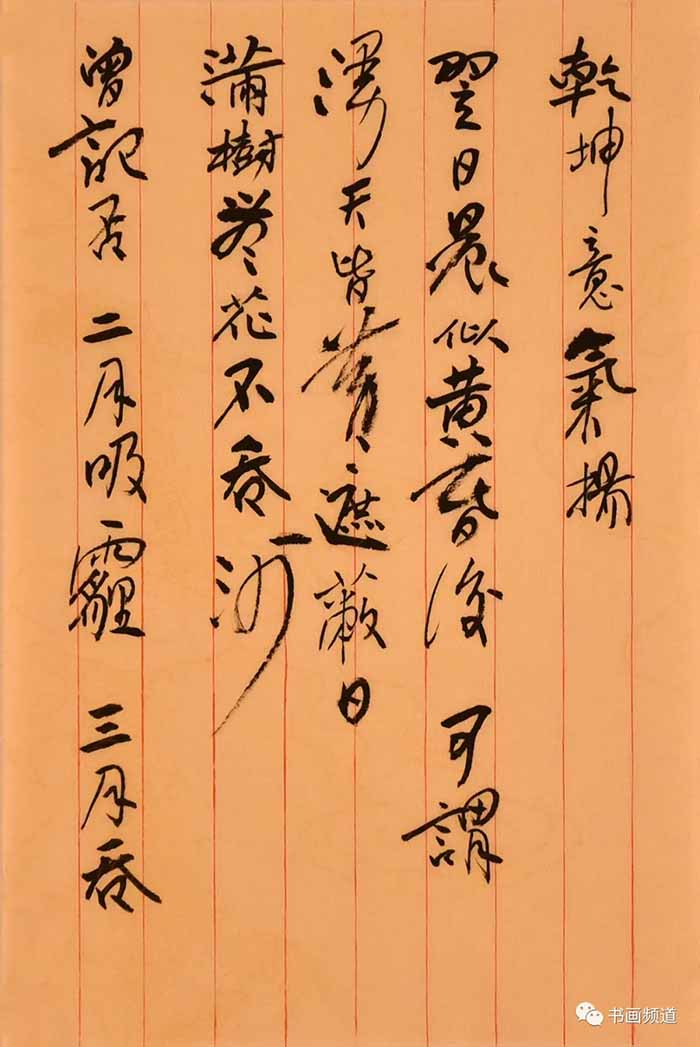 乾坤意氣揚
翌日晨似黃昏後 可謂
漫天皆遮蔽日
滿樹花不吞沙
曾記否 二月吸霾 三月吞
书画频道